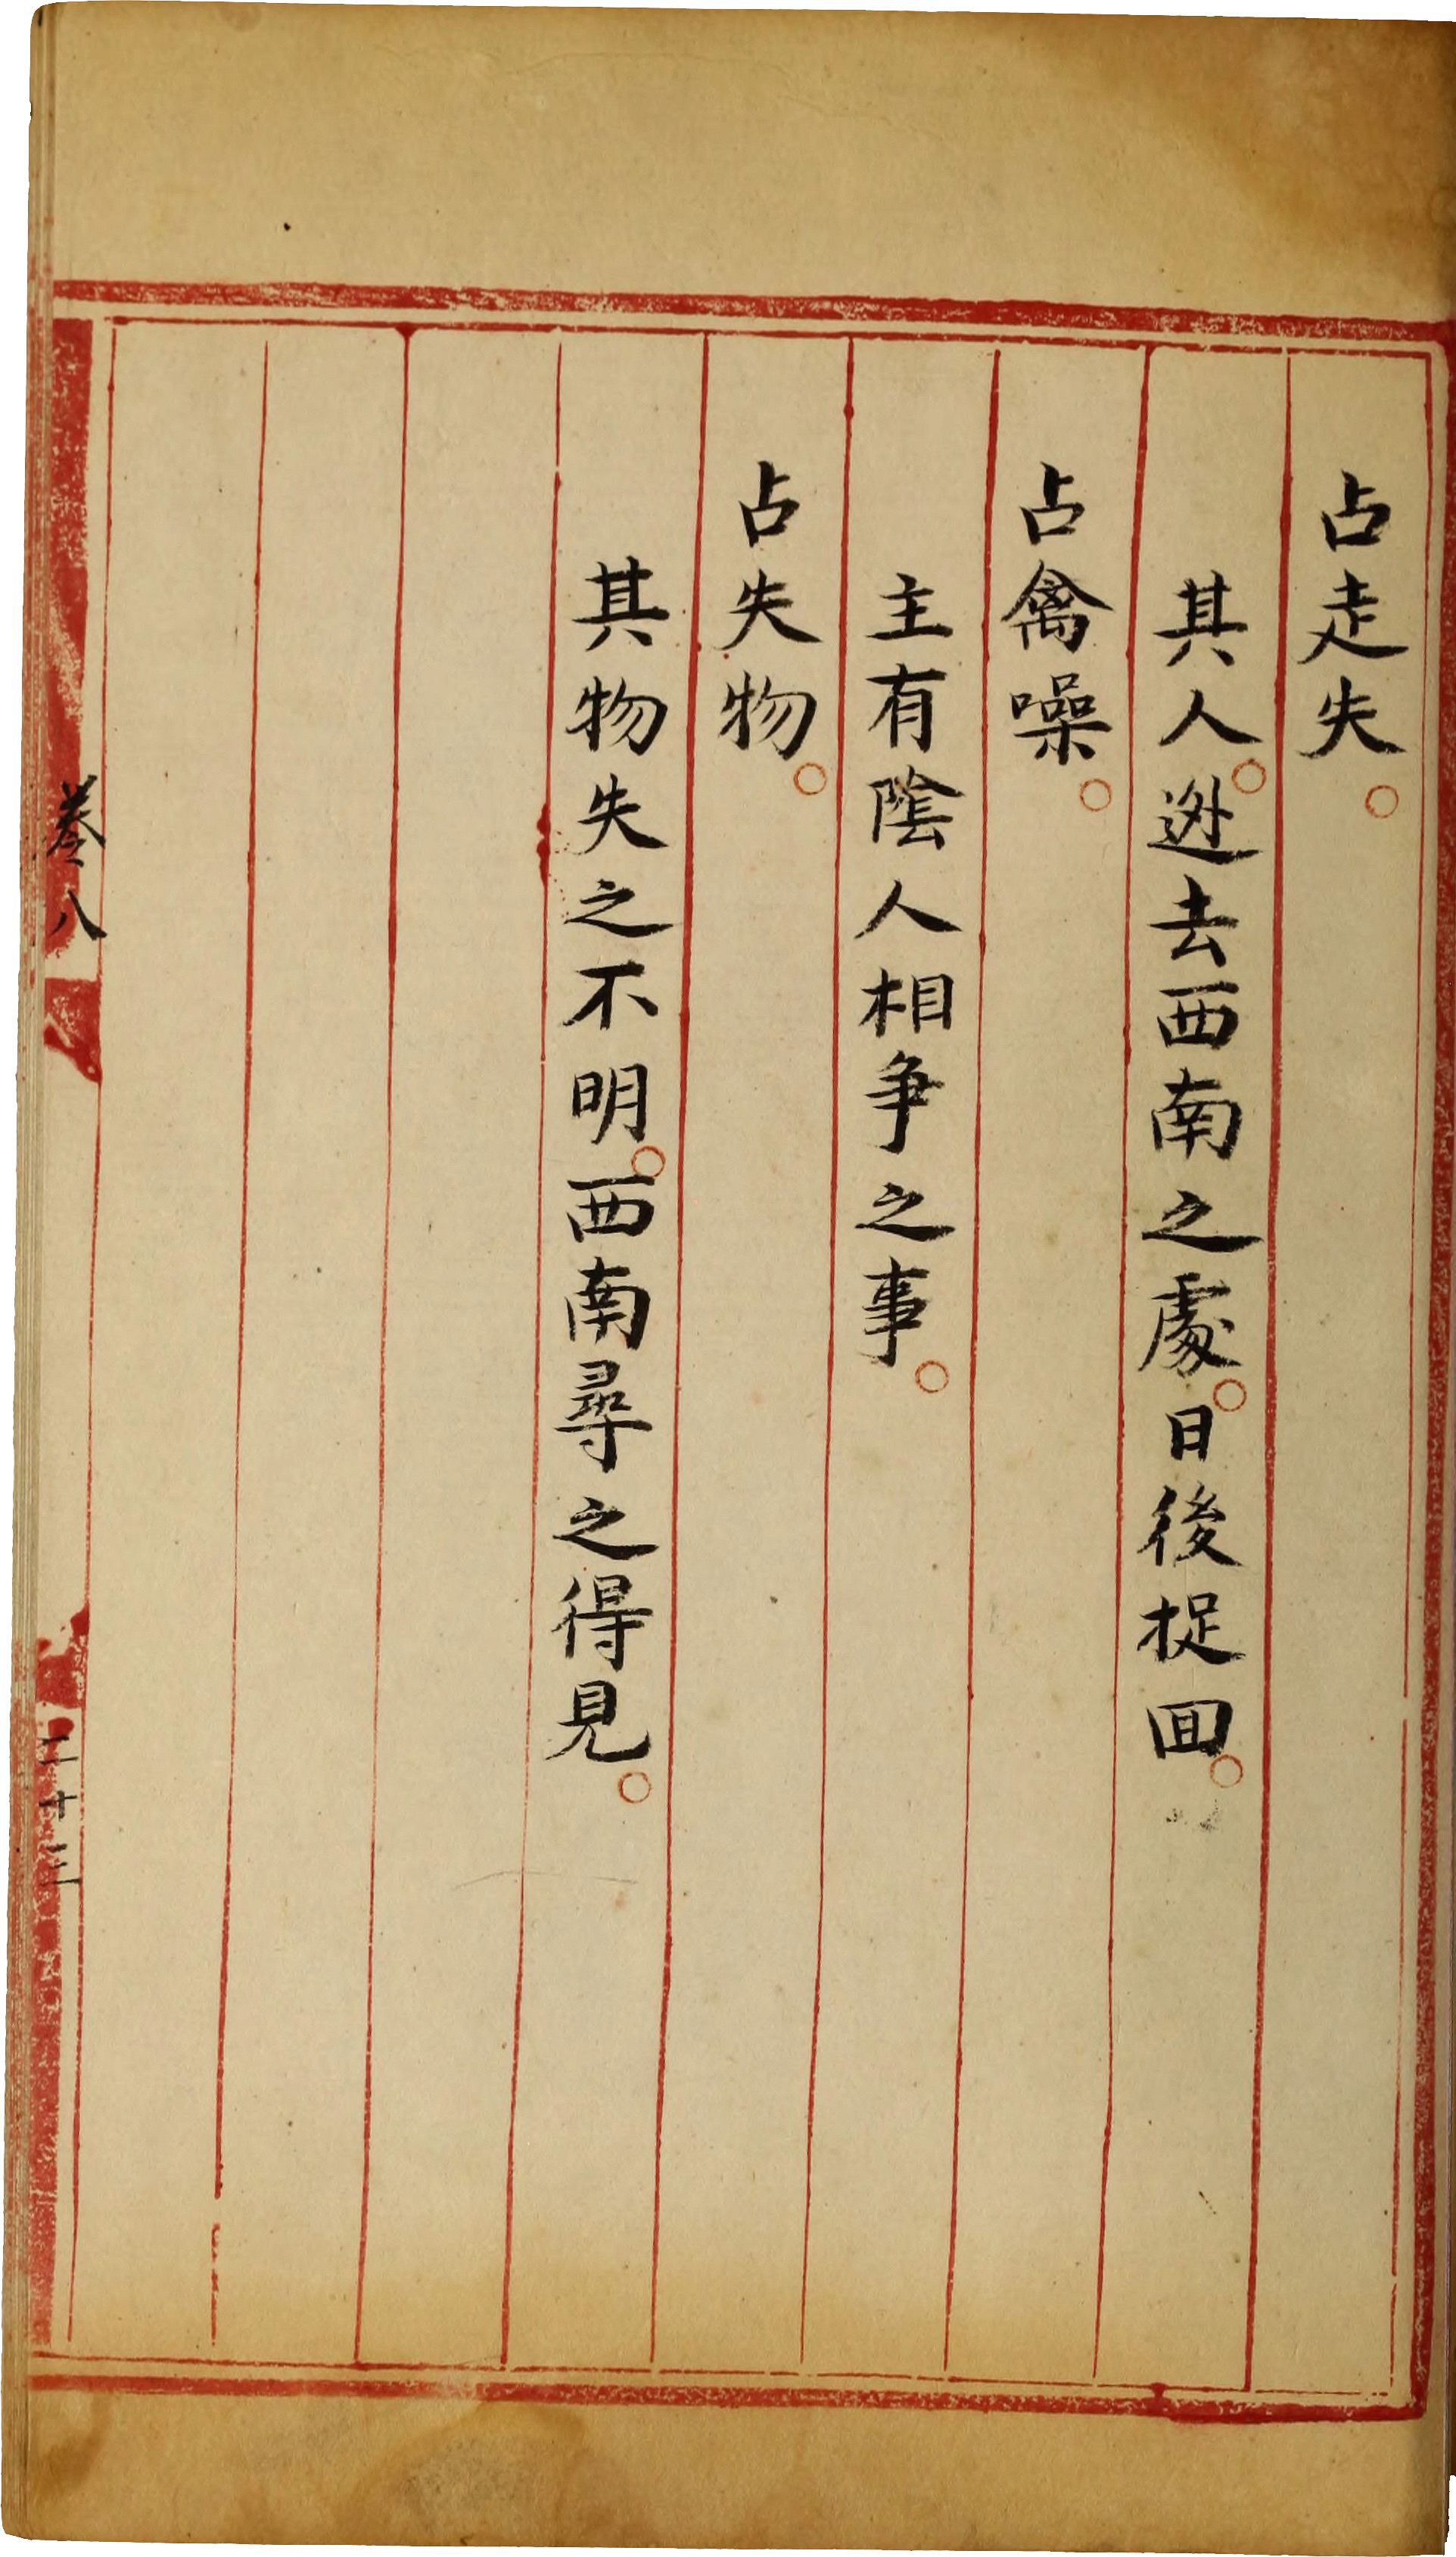 占走失。
其人。逃去西南之處。日後捉回。
占禽噪。
主有陰人相爭之事。
占失物。
其物失之不明。西南尋之得見。
卷八
二十三